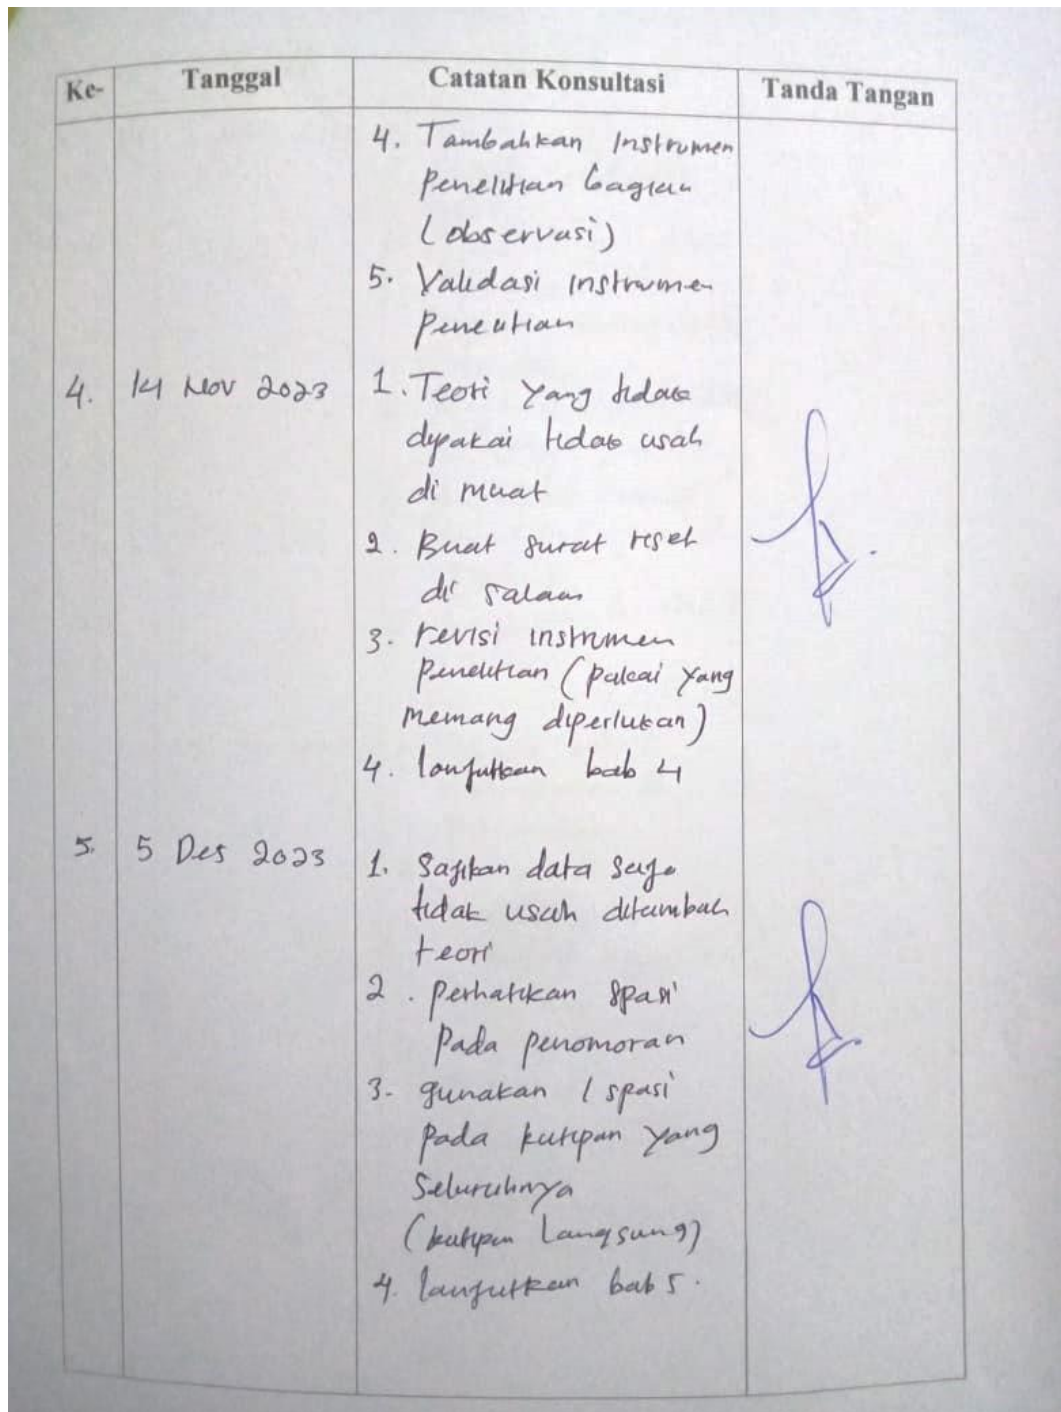 Ke- Tanggal Catatan Konsultasi Tanda Tangan
4. Tambahkan Instrumen
Penelitian bagian
(observasi)
5. Validasi instrumen
Penelitian
4. 14 Nov 2023 1. Teori yang tidak
dipakai tidak usah
di muat
2. Buat surat riset
di salam
3. revisi instrumen
Penelitian (pakai yang
memang diperlukan)
4. lanjutkan bab 4
5. 5 Des 2023 1. Sajikan data saja
tidak usah ditambah
teori
2. perhatikan spasi
pada penomoran
3. gunakan 1 spasi
pada kutipan yang
Seluruhnya
(kutipan Langsung)
4. lanjutkan bab 5.